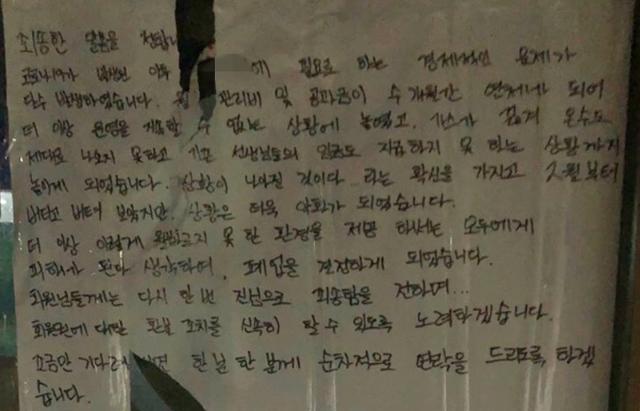 죄송한 말씀을 전합니
코로나가 발생된 이후 에 필요로 하는 경제적인 문제가
다수 발생하였습니다. 월 관리비 및 공과금이 수개월간 연체가 되어
더 이상 운영을 지속할 수 없는 상황에 놓였고, 가스가 끊겨 온수도
제대로 나오지 못하고 기존 선생님들의 임금도 지급하지 못 하는 상황까지
놓이게 되었습니다. 상황이 나아질 것이다 라는 확신을 가지고 2월부터
버티고 버텨 보았지만, 상황은 더욱 악화가 되었습니다.
더 이상 이렇게 원활하지 못한 환경을 제공 하는 모두에게
피해가 된다 생각하여, 폐업을 결정하게 되었습니다.
회원님들께는 다시 한 번 진심으로 죄송함을 전하며...
회원권에 대한 환불 조치를 신속히 할 수 있도록 노력하겠습니다.
조금만 한 분 한 분께 순차적으로 연락을 드리도록 하겠
습니다.